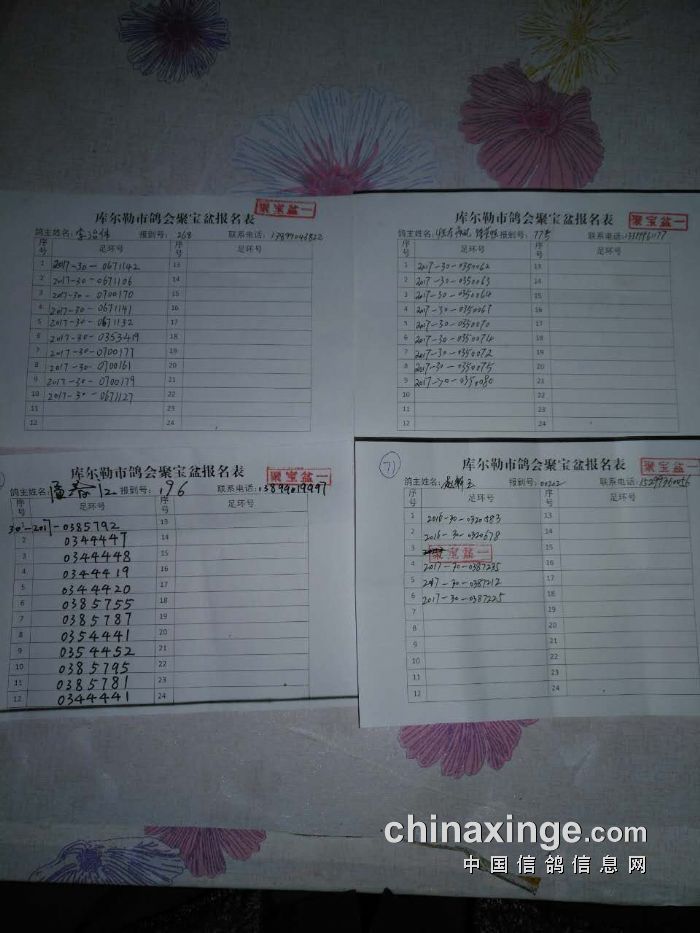 聚宝盆一
库尔勒市鸽会聚宝盆报名表
鸽主姓名: 报到号: 268 联系电话:
序号 足环号 序号 足环号
1 2017-30-0671142 13
2 2017-30-0671106 14
3 2017-30-0700170 15
4 2017-30-0671141 16
5 2017-30-0671132 17
6 2017-30-0353419 18
7 2017-30-0700177 19
8 2017-30-0700161 20
9 2017-30-0700179 21
10 2017-30-0671127 22
11 23
12 24
聚宝盆一
库尔勒市鸽会聚宝盆报名表
鸽主姓名: 报到号: 77号 联系电话:
序号 足环号 序号 足环号
1 2017-30-0350062 13
2 2017-30-0350063 14
3 2017-30-0350064 15
4 2017-30-0350067 16
5 2017-30-0350070 17
6 2017-30-0350074 18
7 2017-30-0350072 19
8 2017-30-0350075 20
9 2017-30-0350080 21
10 22
11 23
12 24
聚宝盆一
库尔勒市鸽会聚宝盆报名表
鸽主姓名: 12 报到号: 196 联系电话: 13899019997
序号 足环号 序号 足环号
30-2017-0385792 13
2 0344447 14
3 0344448 15
4 0344419 16
5 0344420 17
6 0385755 18
7 0385787 19
8 0354441 20
9 0354452 21
10 0385795 22
11 0385781 23
12 0344441 24
71
聚宝盆一
库尔勒市鸽会聚宝盆报名表
鸽主姓名: 报到号: 联系电话: 15299360056
序号 足环号 序号 足环号
1 2016-30-0320483 13
2 2016-30-0320678 14
3 聚宝盆一 15
4 2017-30-0387235 16
5 2017-30-0387212 17
6 2017-30-0387225 18
7 19
8 20
9 21
10 22
11 23
12 24
chinaxinge.com
中国信鸽信息网